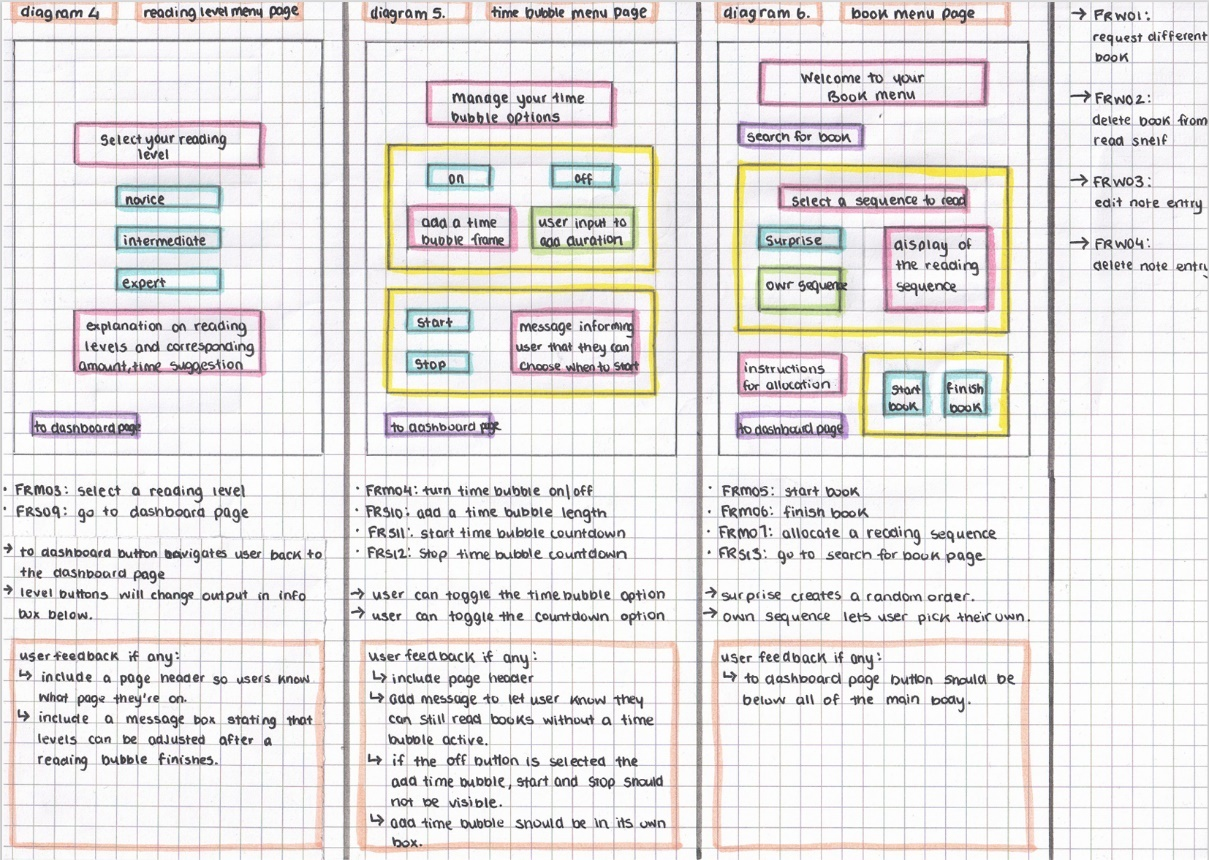 diagram 4 reading level menu page
Select your reading
level
novice
intermediate
expert
explanation on reading
levels and corresponding
amount, time suggestion
to dashboard page
• FRM03: select a reading level
• FRS09: go to dashboard page
→ to dashboard button navigates user back to
the dashboard page
→ level buttons will change output in info
box below.
user feedback if any:
↳ include a page header so users know
what page they're on.
↳ include a message box stating that
levels can be adjusted after a
reading bubble finishes.
diagram 5. time bubble menu page
Manage your time
bubble options
on off
add a time
bubble frame
user input to
add duration
start
stop
message informing
user that they can
choose when to start
to dashboard page
• FRM04: turn time bubble on/off
• FRS10: add a time bubble length
• FRS11: start time bubble countdown
• FRS12: stop time bubble countdown
→ user can toggle the time bubble option
→ user can toggle the countdown option
user feedback if any:
↳ include page header
↳ add message to let user know they
can still read books without a time
bubble active.
↳ if the off button is selected the
add time bubble, start and stop should
not be visible.
↳ add time bubble should be in its own
box.
diagram 6. book menu page
Welcome to your
Book menu
search for book
select a sequence to read
surprise
own sequence
display of
the reading
sequence
instructions
for allocation
start
book
finish
book
to dashboard page
• FRM05: start book
• FRM06: finish book
• FRM07: allocate a reading sequence
• FRS13: go to search for book page
→ surprise creates a random order.
→ own sequence lets user pick their own.
user feedback if any:
↳ to dashboard page button should be
below all of the main body.
→ FRW01:
request different
book
→ FRW02:
delete book from
read shelf
→ FRW03:
edit note entry
→ FRW04:
delete note entry